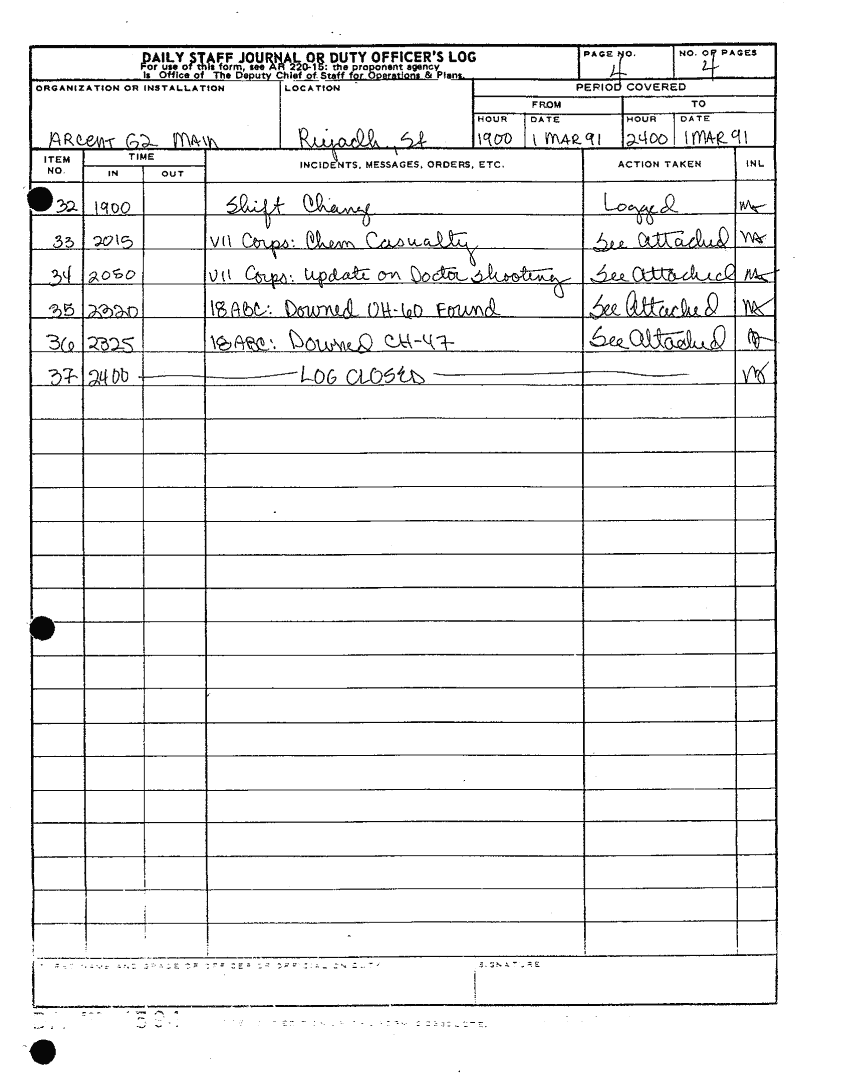 DAILY STAFF JOURNAL OR DUTY OFFICER'S LOG
For use of this form, see AR 220-15: the proponent agency
is Office of The Deputy Chief of Staff for Operations & Plans.
PAGE NO.
4
NO. OF PAGES
4
ORGANIZATION OR INSTALLATION
ARCENT G2 MAIN
LOCATION
Riyadh, SA
PERIOD COVERED
FROM TO
HOUR DATE HOUR DATE
1900 1 MAR 91 2400 1 MAR 91
ITEM NO. TIME INCIDENTS, MESSAGES, ORDERS, ETC. ACTION TAKEN INL
IN OUT
32 1900 Shift Change Logged
33 2015 VII Corps: Chem Casualty See Attached
34 2050 VII Corps: Update on Doctor shooting See Attached
35 2320 18ABC: Downed UH-60 Found See Attached
36 2325 18ABC: Downed CH-47 See Attached
37 2400 LOG CLOSED
NAME AND GRADE OF OFFICER OR OFFICIAL ON DUTY
SIGNATURE